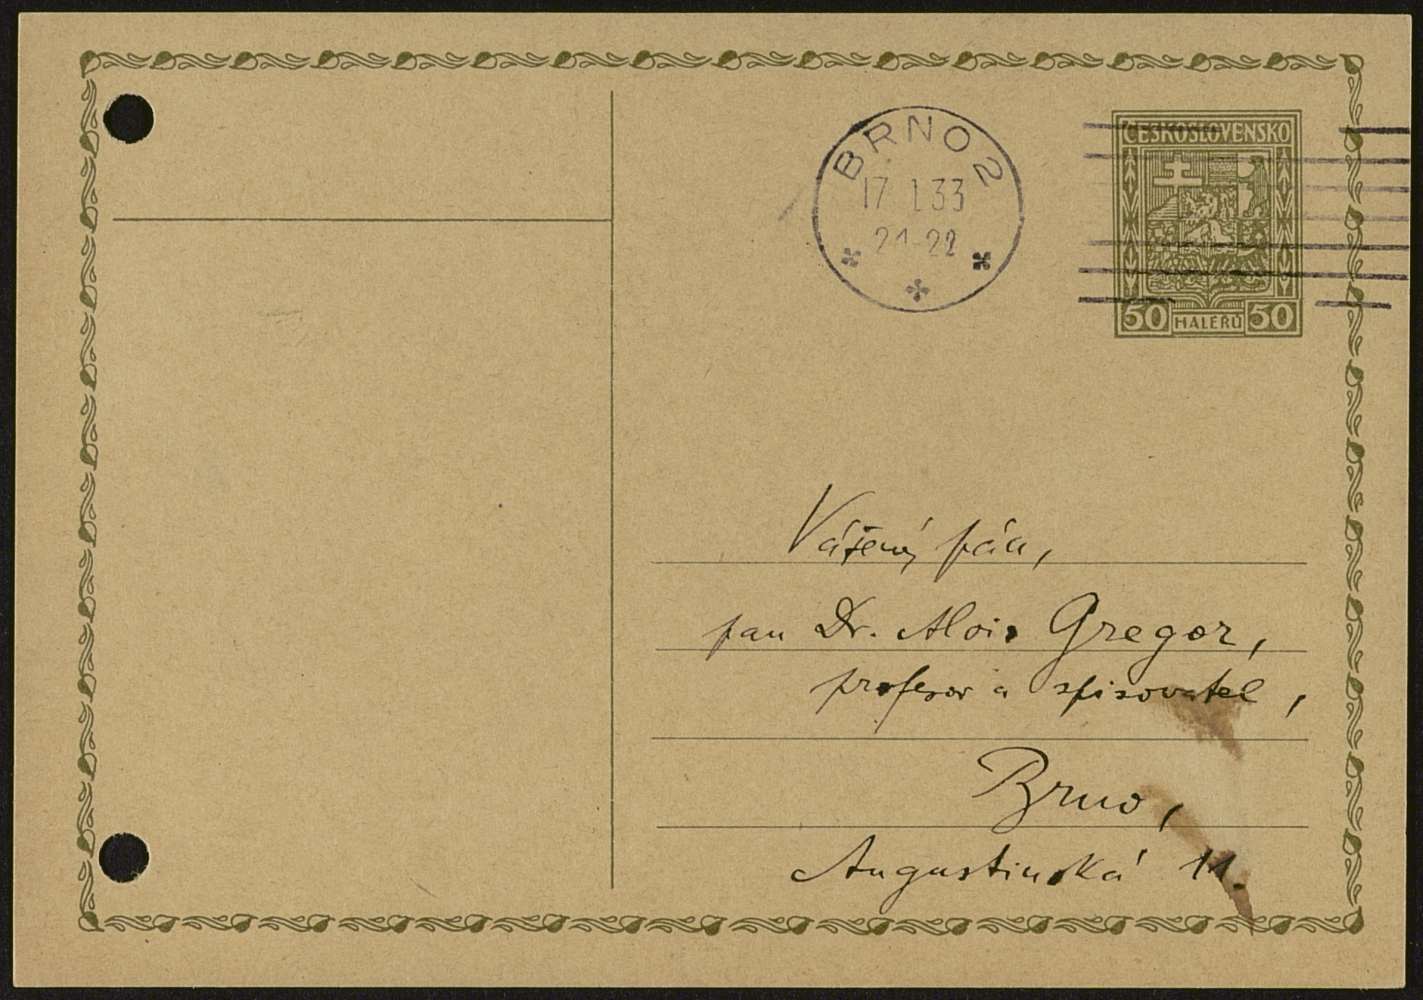 BRNO 2
17. I. 33
21-22
ČESKOSLOVENSKO
50 HALÉŘŮ 50
Vážený pán,
pan Dr. Alois Gregor,
profesor a spisovatel,
Brno,
Augustinská 11.